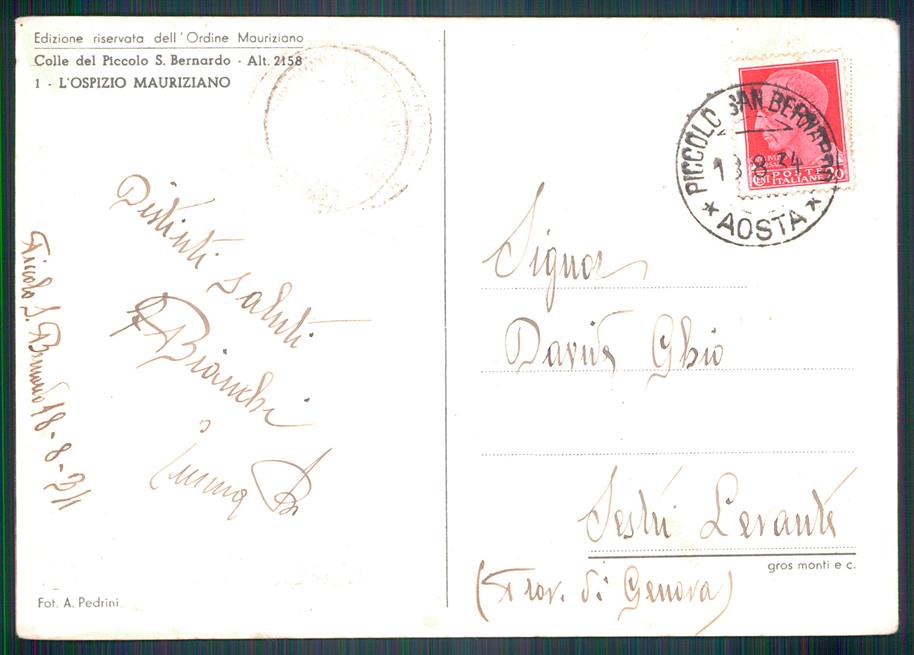 Edizione riservata dell'Ordine Mauriziano
Colle del Piccolo S. Bernardo - Alt. 2158
1 - L'OSPIZIO MAURIZIANO
Distinti saluti
Bianchi
Piccolo S. Bernardo 18-8-34
Fot. A. Pedrini
PICCOLO SAN BERNARDO
18 8 34
* AOSTA *
POSTE
ITALIANE
Signor
Davide Ghio
Sestri Levante
gros monti e c.
(Prov. di Genova)